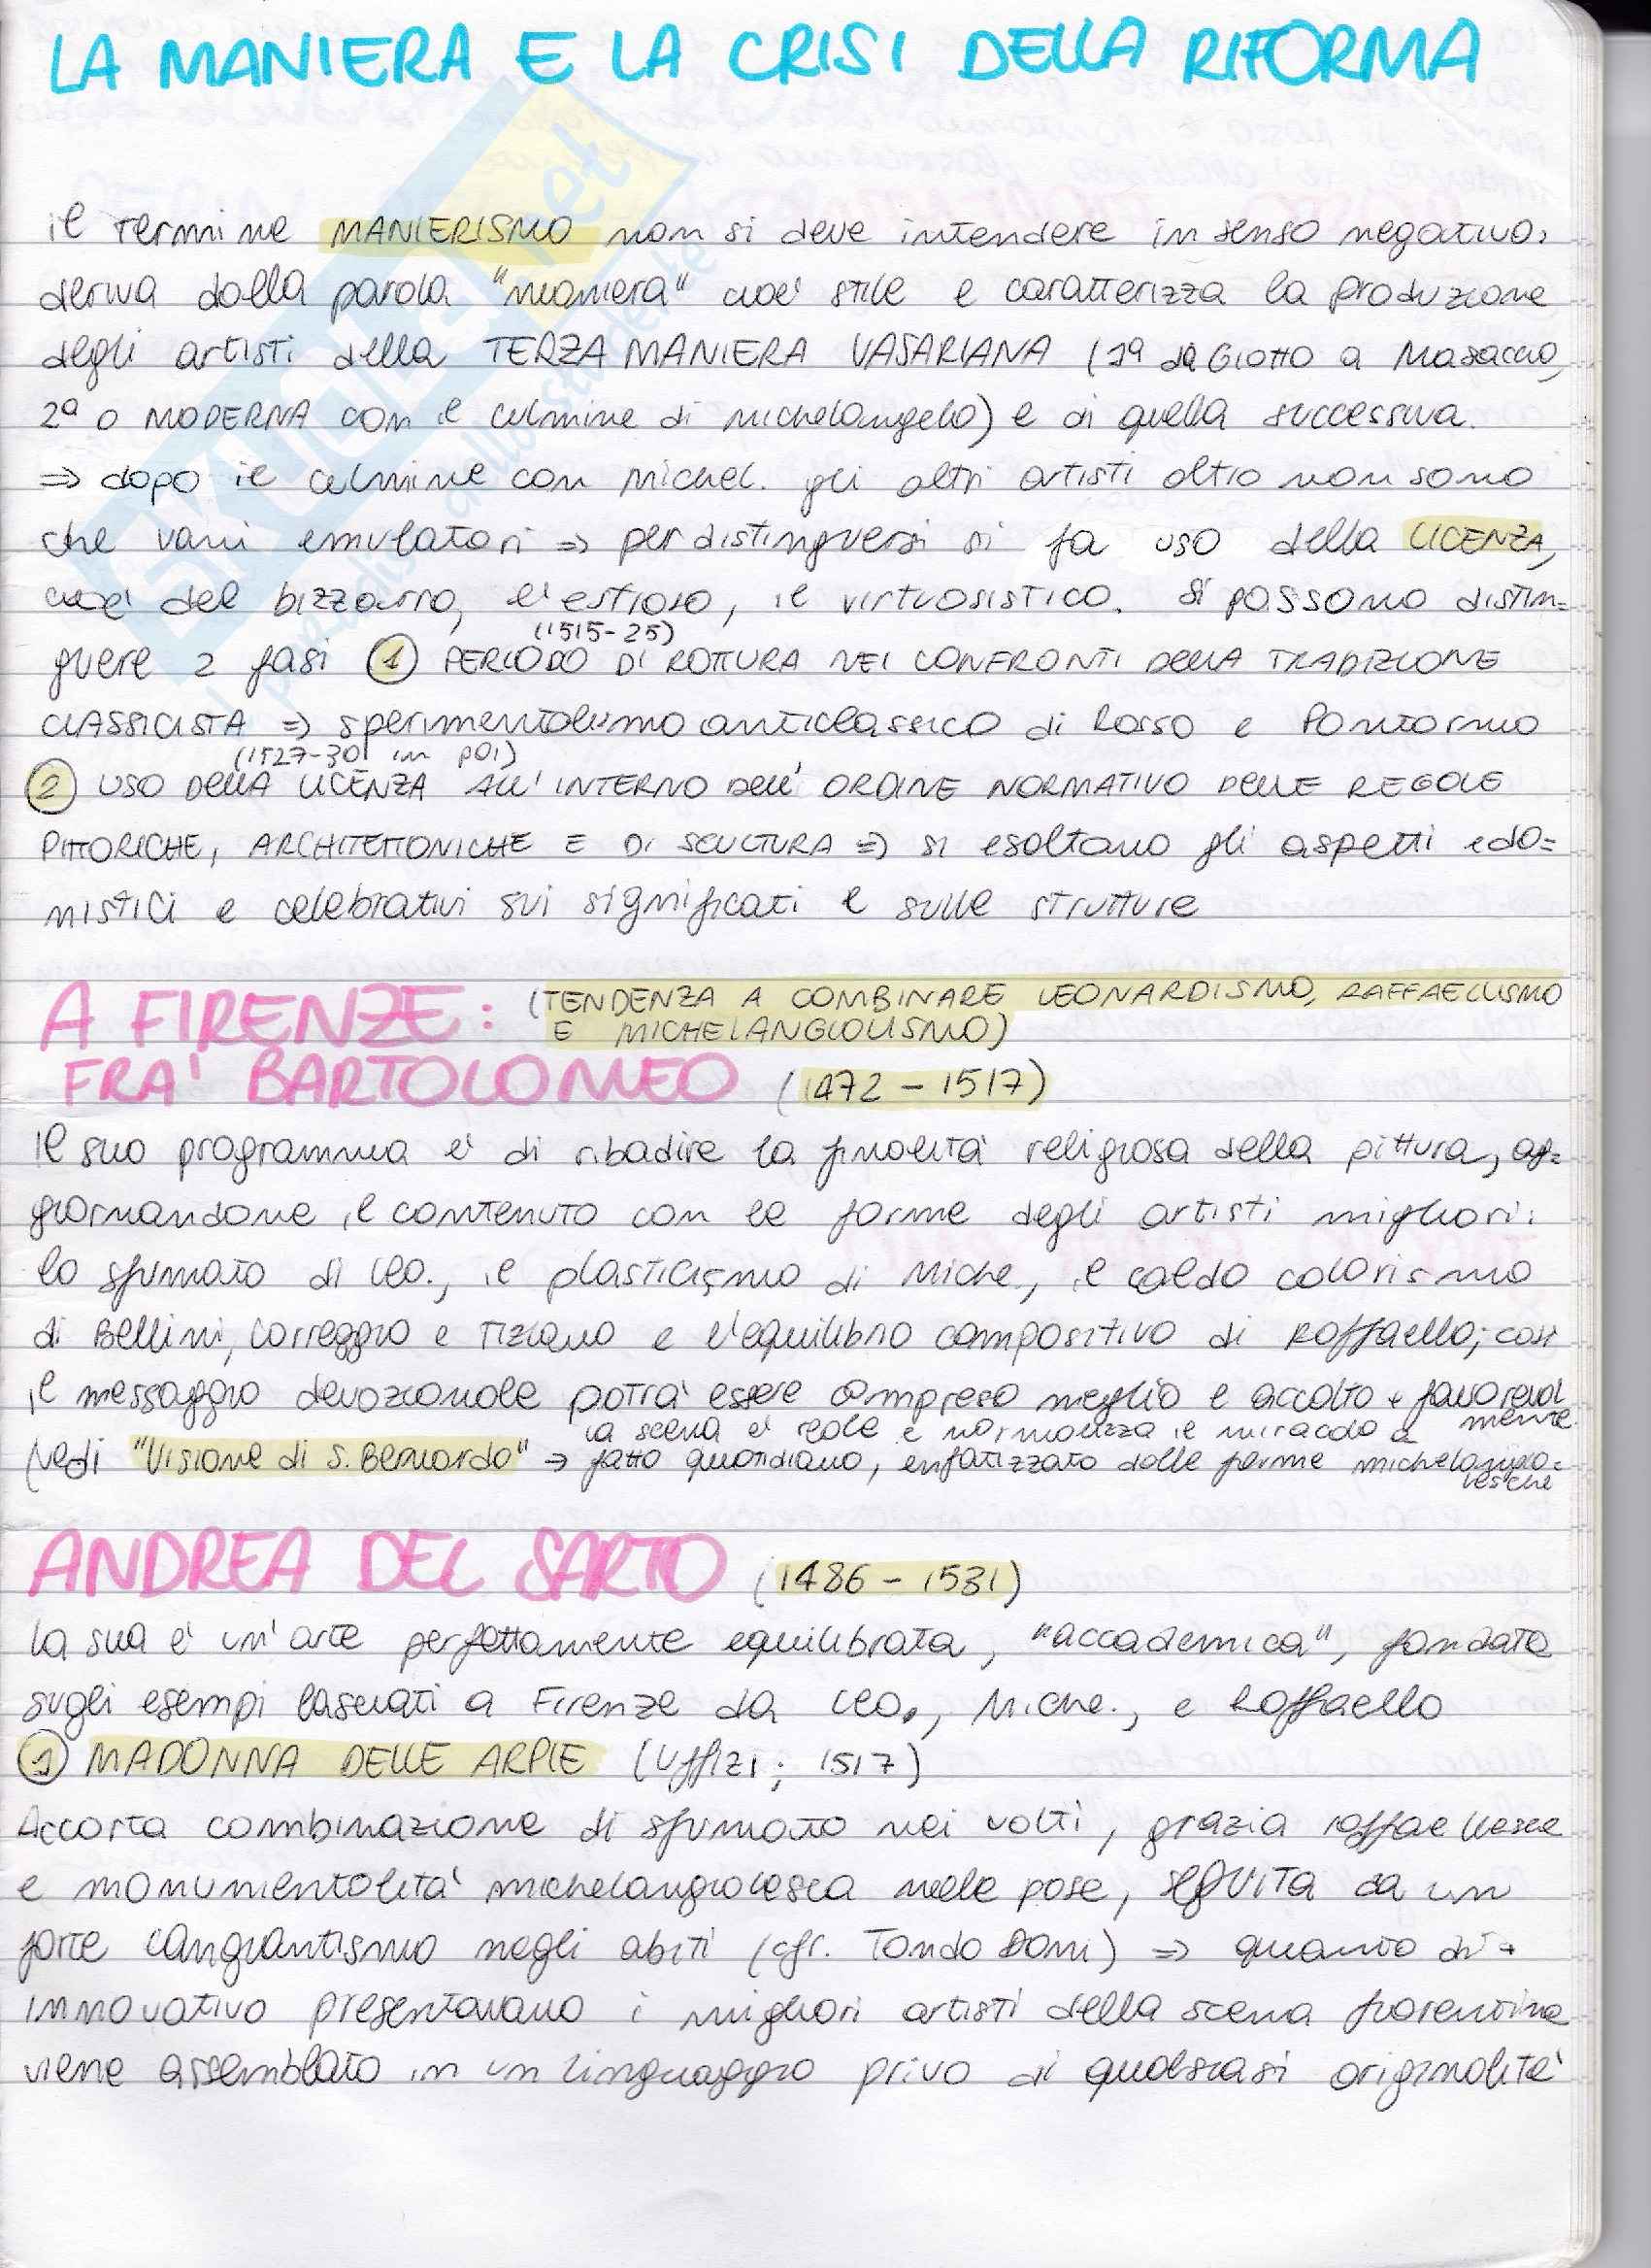 LA MANIERA E LA CRISI DELLA RIFORMA
il termine MANIERISMO non si deve intendere in senso negativo,
deriva dalla parola "maniera" cioè stile e caratterizza la produzione
degli artisti della TERZA MANIERA VASARIANA (1ª da Giotto a Masaccio,
2ª o MODERNA con il culmine di Michelangelo) e di quella successiva.
⇒ dopo il culmine con Michel. gli altri artisti altro non sono
che vani emulatori ⇒ per distinguersi si fa uso della LICENZA,
cioè del bizzarro, l'estroso, il virtuosistico. Si possono distin=
(1515-25)
guere 2 fasi ① PERIODO DI ROTTURA NEI CONFRONTI DELLA TRADIZIONE
CLASSICISTA ⇒ sperimentalismo anticlassico di Rosso e Pontormo
(1527-30 in poi)
② USO DELLA LICENZA ALL'INTERNO DELL'ORDINE NORMATIVO DELLE REGOLE
PITTORICHE, ARCHITETTONICHE E DI SCULTURA ⇒ si esaltano gli aspetti edo=
nistici e celebrativi sui significati e sulle strutture
A FIRENZE: (TENDENZA A COMBINARE LEONARDISMO, RAFFAELLISMO
E MICHELANGIOLISMO)
FRA' BARTOLOMEO (1472 - 1517)
Il suo programma è di ribadire la finalità religiosa della pittura, ag=
giornandone il contenuto con le forme degli artisti migliori:
lo sfumato di Leo., il plasticismo di Miche., il caldo colorismo
di Bellini, Correggio e Tiziano e l'equilibrio compositivo di Raffaello; così
il messaggio devozionale potrà essere compreso meglio e accolto + favorevol
mente
la scena è reale e normalizza il miracolo a
(vedi "Visione di S. Bernardo" → fatto quotidiano, enfatizzato dalle forme michelangio=
lesche
ANDREA DEL SARTO (1486 - 1531)
La sua è un'arte perfettamente equilibrata, "accademica", fondata
sugli esempi lasciati a Firenze da Leo., Miche., e Raffaello
① MADONNA DELLE ARPIE (Uffizi; 1517)
Accorta combinazione di sfumato nei volti, grazia raffaellesca
e monumentalità michelangiolesca nelle pose, seguita da un
forte cangiantismo negli abiti (cfr. Tondo Doni) ⇒ quanto di +
innovativo presentavano i migliori artisti della scena fiorentina
viene assemblato in un linguaggio privo di qualsiasi originalità